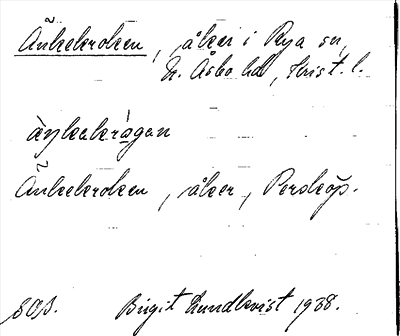 Änkekroken, åker i Rya sn,
N. Åsbo hd, Krist. l.
àŋkekrágan
Änkekroken, åker, Perstorp.
Birgit Lundkvist 1938.